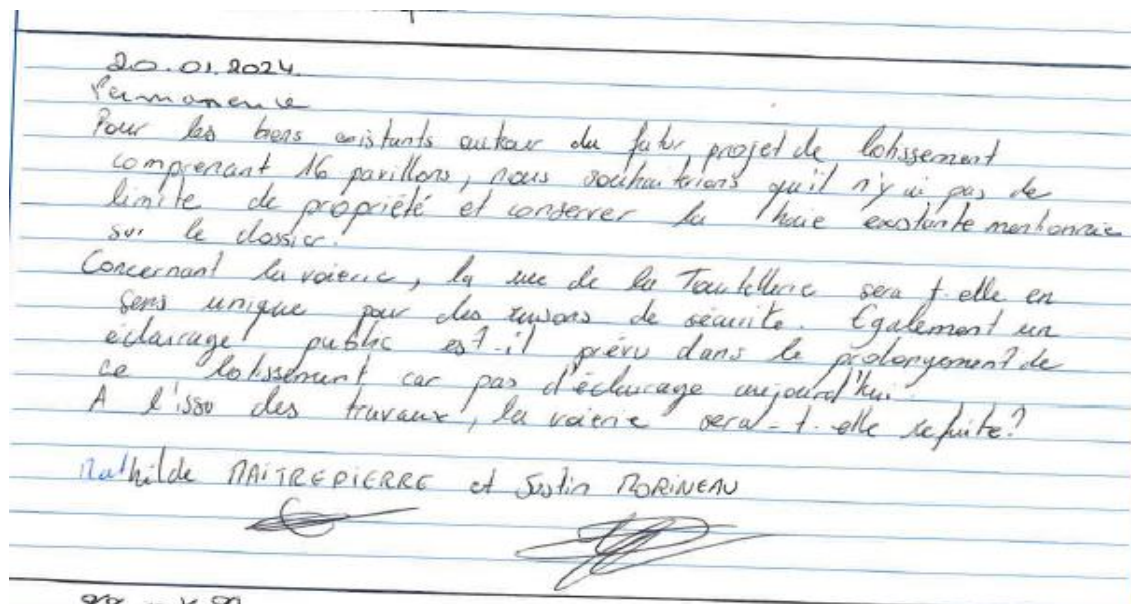 20.01.2024.
Permanence
Pour les biens existants autour du futur projet de lotissement
comprenant 16 pavillons, nous souhaiterions qu'il n'y ai pas de
limite de propriété et conserver la haie existante mentionnée
sur le dossier.
Concernant la voierie, la rue de la sera t-elle en
sens unique pour des raisons de sécurité. Egalement un
éclairage public est-il prévu dans le prolongement de
ce lotissement car pas d'éclairage aujourd'hui.
A l'issu des travaux, la voierie sera-t-elle refaite?
Mathilde MAITREPIERRE et Justin MORINEAU